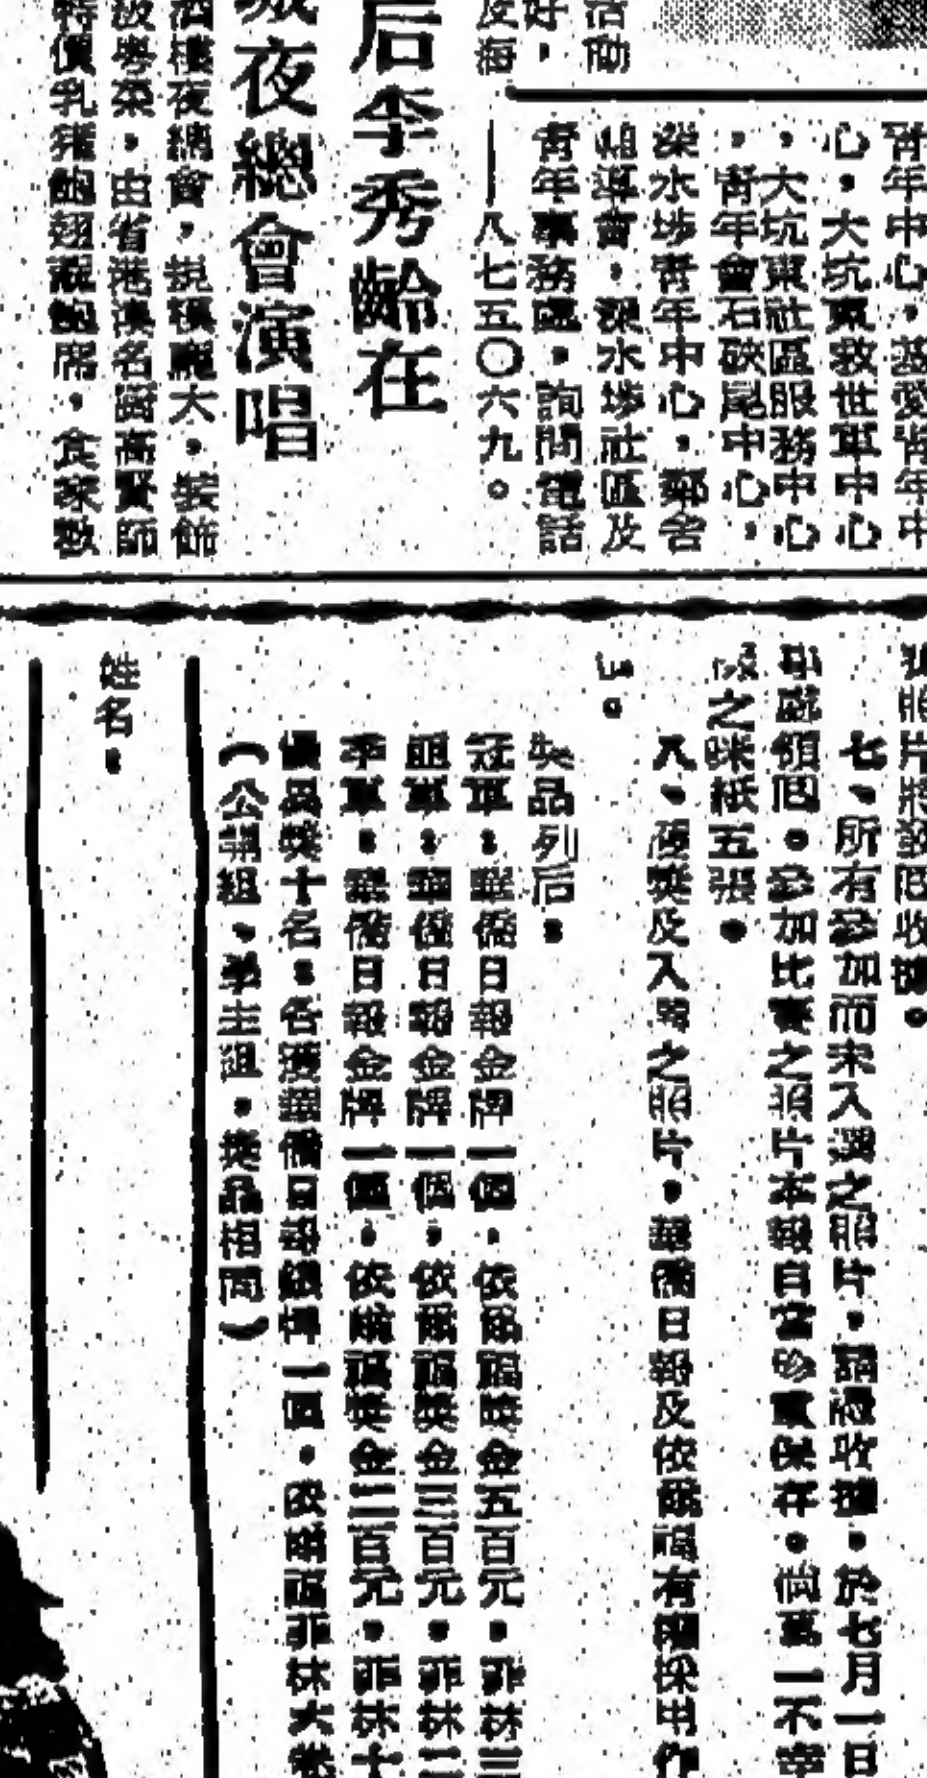 青年中心，基愛青年中
心，大坑東救世軍中心
，大坑東社區服務中心
，青年會石硤尾中心，
深水埗青年中心，鄰舍
輔導會，深水埗社區及
青年事務處，詢問電話
——八七五〇六九。
活動
好，
及海
后李秀齡在
城夜總會演唱
酒樓夜總會，規模龐大，裝飾
粵菜，由省港澳名廚高賢師
特價乳豬鮑翅 席，食家
照片將發回收據。
七、所有參加而未入選之照片，請憑收據，於七月一日
領回。參加比賽之照片本報自當珍重保存，倘萬一不幸
之咪紙五張。
八、獲獎及入選之照片，華僑日報及依爾福有權採用作
。
獎品列后：
冠軍：華僑日報金牌一個，依爾福獎金五百元，菲林三
亞軍：華僑日報金牌一個，依爾福獎金三百元，菲林二
季軍：華僑日報金牌一個，依爾福獎金二百元，菲林十
優異獎十名：各獲華僑日報銀牌一個，依爾福菲林大卷
（公開組、學生組，獎品相同）
姓名：